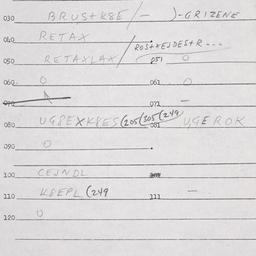 030 BRUS+K8E/— )-GRIZENE
040 RETAX
050 RETAXLAX/ROS+XEJDES+R...
051 O
060 O 061 O
071 —
080 UG8EXK8ES(205(305(249 081 UGEROK
090 O
100 CEJNDL
110 K8EPL(249 111 —
120 O